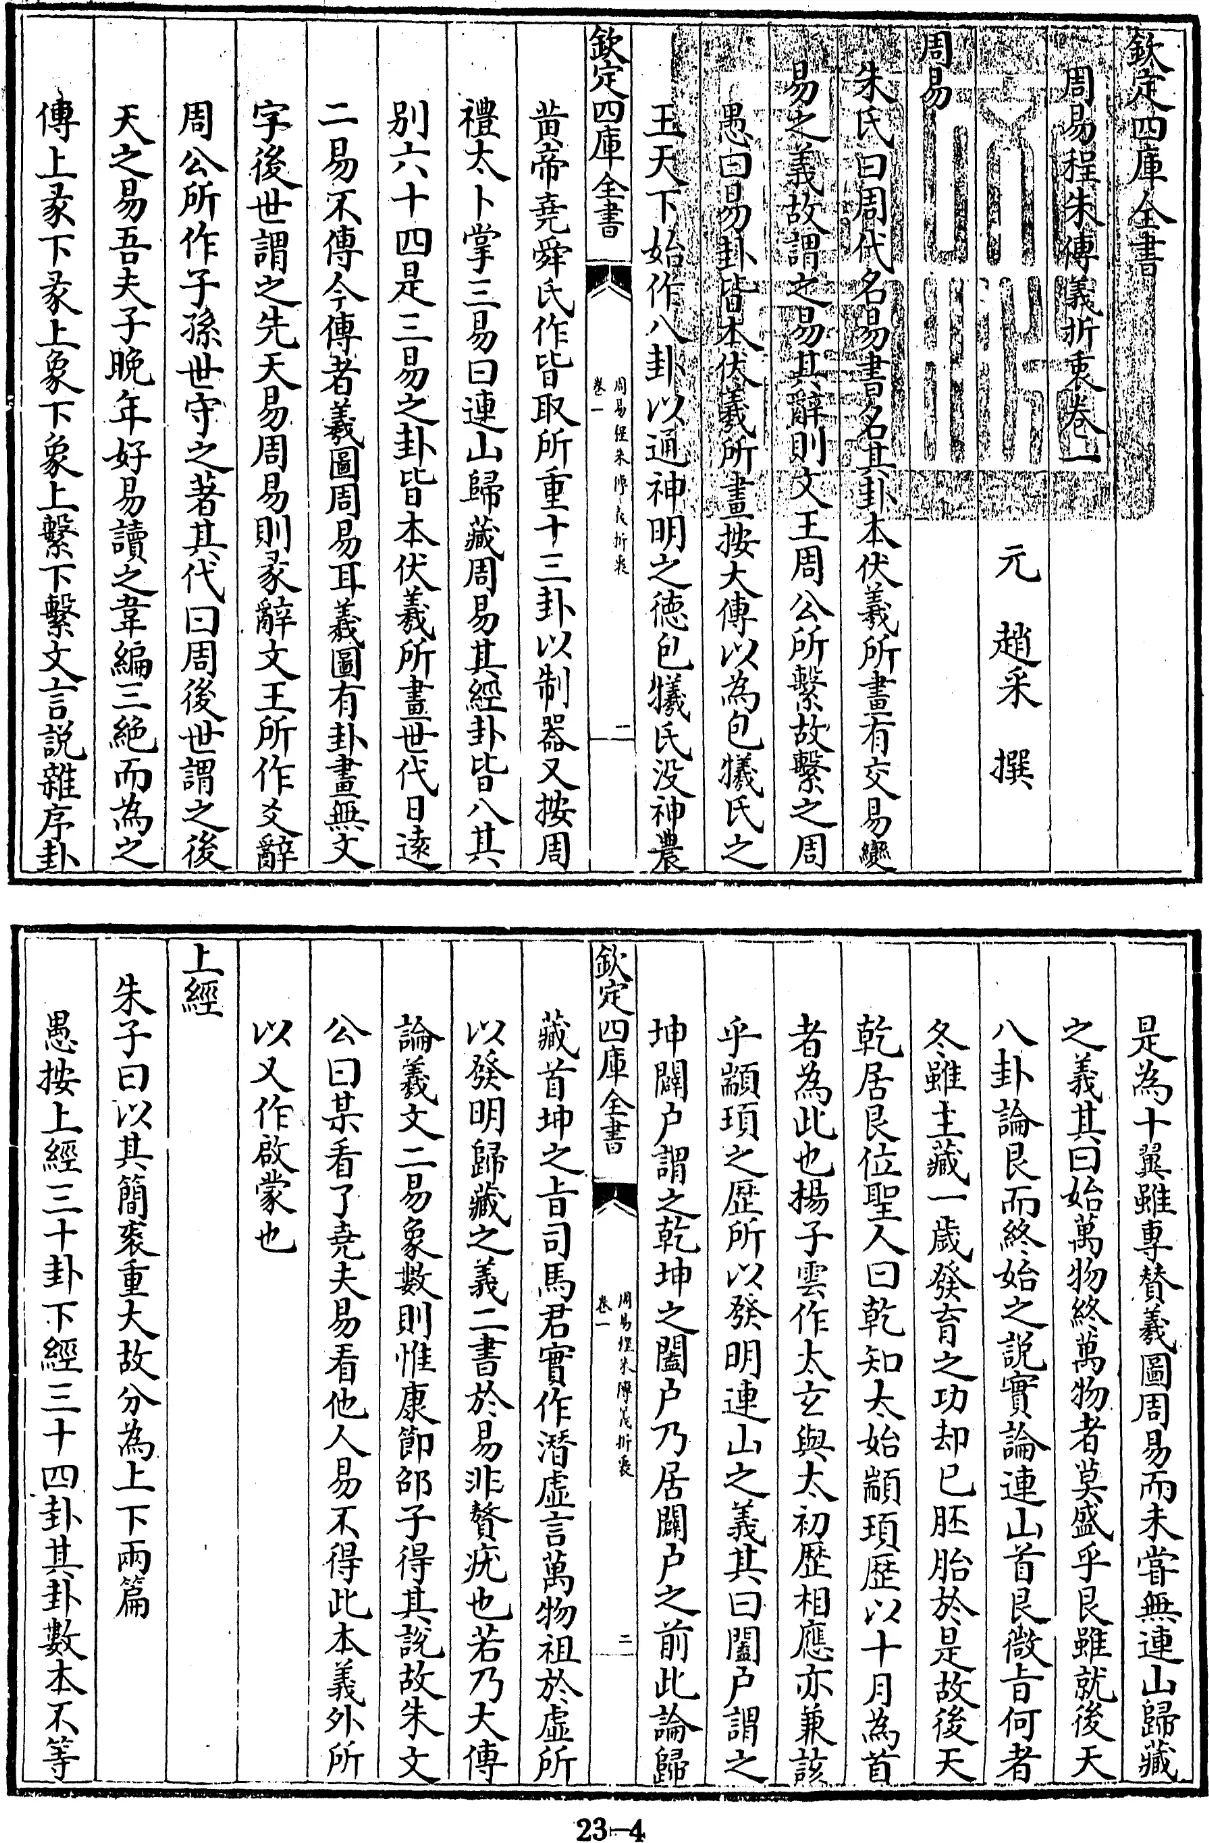 欽定四庫全書
周易程朱傳義折衷卷一
元 趙采 撰
周易
朱氏曰周代名易書名其卦本伏羲所畫有交易變
易之義故謂之易其辭則文王周公所繫故繫之周
愚曰易卦皆本伏羲所畫按大傳以為包犧氏之
王天下始作八卦以通神明之徳包犧氏没神農
欽定四庫全書
周易程朱傳義折衷
卷一
黄帝堯舜氏作皆取所重十三卦以制器又按周
禮太卜掌三易曰連山歸藏周易其經卦皆八其
别六十四是三易之卦皆本伏羲所畫世代日逺
二易不傳今傳者羲圖周易耳羲圖有卦畫無文
字後世謂之先天易周易則彖辭文王所作爻辭
周公所作子孫世守之著其代曰周後世謂之後
天之易吾夫子晚年好易讀之韋編三絶而為之
傳上彖下彖上象下象上繫下繫文言説雜序卦
是為十翼雖專賛羲圖周易而未嘗無連山歸藏
之義其曰始萬物終萬物者莫盛乎艮雖就後天
八卦論艮而終始之説實論連山首艮微㫖何者
冬雖主藏一歲發育之功却已胚胎於是故後天
乾居艮位聖人曰乾知太始顓頊歴以十月為首
者為此也揚子雲作太玄與太初歴相應亦兼該
乎顓頊之歴所以發明連山之義其曰闔户謂之
坤闢户謂之乾坤之闔户乃居闢户之前此論歸
欽定四庫全書
周易程朱傳義折衷
卷一
二
藏首坤之㫖司馬君實作潛虚言萬物祖於虚所
以發明歸藏之義二書於易非贅疣也若乃大傳
論羲文二易象數則惟康節邵子得其説故朱文
公曰某看了堯夫易看他人易不得此本義外所
以又作啟蒙也
上經
朱子曰以其簡袠重大故分為上下兩篇
愚按上經三十卦下經三十四卦其卦數本不等
23-4